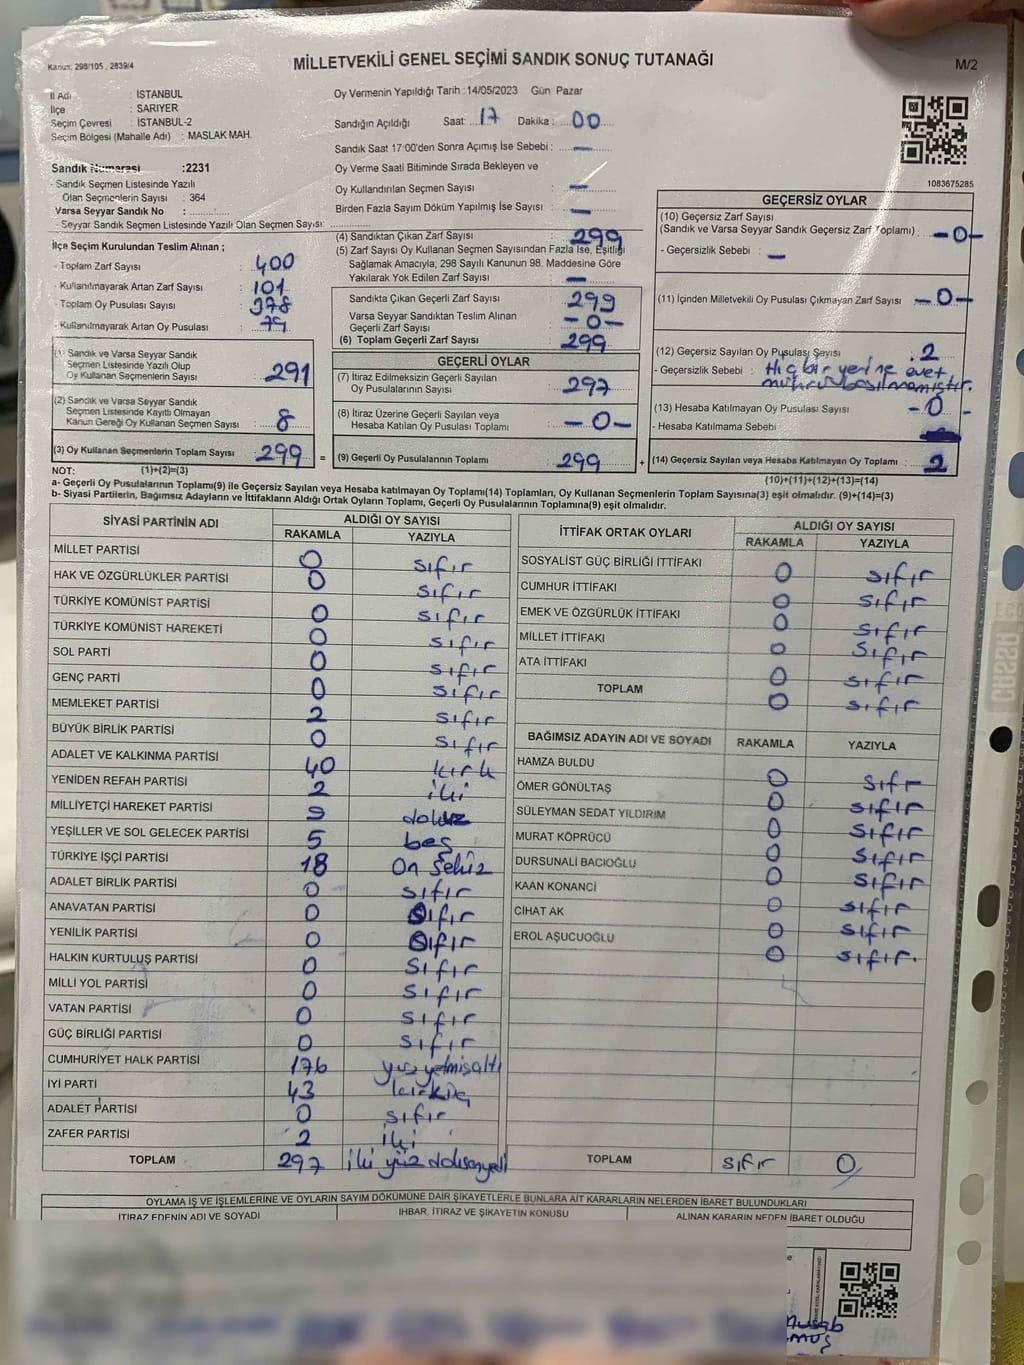 MİLLETVEKİLİ GENEL SEÇİMİ SANDIK SONUÇ TUTANAĞI
Kanun: 298/105 , 2839/4
M/2
İl Adı : İSTANBUL
İlçe : SARIYER
Seçim Çevresi : İSTANBUL-2
Seçim Bölgesi (Mahalle Adı) : MASLAK MAH.
Sandık Numarası :2231
- Sandık Seçmen Listesinde Yazılı
Olan Seçmenlerin Sayısı : 364
Varsa Seyyar Sandık No :
- Seyyar Sandık Seçmen Listesinde Yazılı Olan Seçmen Sayısı:
Oy Vermenin Yapıldığı Tarih :14/05/2023 Gün Pazar
Sandığın Açıldığı Saat : 17 Dakika : 00
Sandık Saat 17:00'den Sonra Açımış İse Sebebi : —
Oy Verme Saati Bitiminde Sırada Bekleyen ve
Oy Kullandırılan Seçmen Sayısı : —
Birden Fazla Sayım Döküm Yapılmış İse Sayısı : —
1083675285
İlçe Seçim Kurulundan Teslim Alınan ;
- Toplam Zarf Sayısı : 400
- Kullanılmayarak Artan Zarf Sayısı : 101
- Toplam Oy Pusulası Sayısı : 378
- Kullanılmayarak Artan Oy Pusulası : 79
(1) Sandık ve Varsa Seyyar Sandık
Seçmen Listesinde Yazılı Olup
Oy Kullanan Seçmenlerin Sayısı : 291
(2) Sandık ve Varsa Seyyar Sandık
Seçmen Listesinde Kayıtlı Olmayan
Kanun Gereği Oy Kullanan Seçmen Sayısı : 8
(3) Oy Kullanan Seçmenlerin Toplam Sayısı : 299 =
(4) Sandıktan Çıkan Zarf Sayısı : 299
(5) Zarf Sayısı Oy Kullanan Seçmen Sayısından Fazla İse, Eşitliği
Sağlamak Amacıyla, 298 Sayılı Kanunun 98. Maddesine Göre
Yakılarak Yok Edilen Zarf Sayısı : —
Sandıkta Çıkan Geçerli Zarf Sayısı : 299
Varsa Seyyar Sandıktan Teslim Alınan
Geçerli Zarf Sayısı : —0—
(6) Toplam Geçerli Zarf Sayısı : 299
GEÇERLİ OYLAR
(7) İtiraz Edilmeksizin Geçerli Sayılan
Oy Pusulalarının Sayısı : 297
(8) İtiraz Üzerine Geçerli Sayılan veya
Hesaba Katılan Oy Pusulası Toplamı : —0—
(9) Geçerli Oy Pusulalarının Toplamı : 299 +
GEÇERSİZ OYLAR
(10) Geçersiz Zarf Sayısı
(Sandık ve Varsa Seyyar Sandık Geçersiz Zarf Toplamı) : —0—
- Geçersizlik Sebebi : —
(11) İçinden Milletvekili Oy Pusulası Çıkmayan Zarf Sayısı : —0—
(12) Geçersiz Sayılan Oy Pusulası Sayısı : 2
- Geçersizlik Sebebi : Hiç bir yerine evet
mührü basılmamıştır.
(13) Hesaba Katılmayan Oy Pusulası Sayısı : —0—
- Hesaba Katılmama Sebebi
(14) Geçersiz Sayılan veya Hesaba Katılmayan Oy Toplamı : 2
NOT: (1)+(2)=(3)
(10)+(11)+(12)+(13)=(14)
a- Geçerli Oy Pusulalarının Toplamı(9) ile Geçersiz Sayılan veya Hesaba katılmayan Oy Toplamı(14) Toplamları, Oy Kullanan Seçmenlerin Toplam Sayısına(3) eşit olmalıdır. (9)+(14)=(3)
b- Siyasi Partilerin, Bağımsız Adayların ve İttifakların Aldığı Ortak Oyların Toplamı, Geçerli Oy Pusulalarının Toplamına(9) eşit olmalıdır.
SİYASİ PARTİNİN ADI ALDIĞI OY SAYISI
RAKAMLA YAZIYLA
MİLLET PARTİSİ 0 sıfır
HAK VE ÖZGÜRLÜKLER PARTİSİ 0 sıfır
TÜRKİYE KOMÜNİST PARTİSİ 0 sıfır
TÜRKİYE KOMÜNİST HAREKETİ 0 sıfır
SOL PARTİ 0 sıfır
GENÇ PARTİ 0 sıfır
MEMLEKET PARTİSİ 2 sıfır
BÜYÜK BİRLİK PARTİSİ 0 sıfır
ADALET VE KALKINMA PARTİSİ 40 kırk
YENİDEN REFAH PARTİSİ 2 iki
MİLLİYETÇİ HAREKET PARTİSİ 9 dokuz
YEŞİLLER VE SOL GELECEK PARTİSİ 5 beş
TÜRKİYE İŞÇİ PARTİSİ 18 On Sekiz
ADALET BİRLİK PARTİSİ 0 sıfır
ANAVATAN PARTİSİ 0 sıfır
YENİLİK PARTİSİ 0 sıfır
HALKIN KURTULUŞ PARTİSİ 0 sıfır
MİLLİ YOL PARTİSİ 0 sıfır
VATAN PARTİSİ 0 sıfır
GÜÇ BİRLİĞİ PARTİSİ 0 sıfır
CUMHURİYET HALK PARTİSİ 176 yüz yetmiş altı
İYİ PARTİ 43 kırk üç
ADALET PARTİSİ 0 sıfır
ZAFER PARTİSİ 2 iki
TOPLAM 297 iki yüz doksanyedi
İTTİFAK ORTAK OYLARI ALDIĞI OY SAYISI
RAKAMLA YAZIYLA
SOSYALİST GÜÇ BİRLİĞİ İTTİFAKI 0 sıfır
CUMHUR İTTİFAKI 0 sıfır
EMEK VE ÖZGÜRLÜK İTTİFAKI 0 sıfır
MİLLET İTTİFAKI 0 sıfır
ATA İTTİFAKI 0 sıfır
TOPLAM 0 sıfır
BAĞIMSIZ ADAYIN ADI VE SOYADI RAKAMLA YAZIYLA
HAMZA BULDU 0 sıfr
ÖMER GÖNÜLTAŞ 0 sıfır
SÜLEYMAN SEDAT YILDIRIM 0 sıfır
MURAT KÖPRÜCÜ 0 sıfır
DURSUNALİ BACIOĞLU 0 sıfır
KAAN KONANCİ 0 sıfır
CİHAT AK 0 sıfır
EROL AŞUCUOĞLU 0 sıfır.
TOPLAM sıfır 0
OYLAMA İŞ VE İŞLEMLERİNE VE OYLARIN SAYIM DÖKÜMÜNE DAİR ŞİKAYETLERLE BUNLARA AİT KARARLARIN NELERDEN İBARET BULUNDUKLARI
İTİRAZ EDENİN ADI VE SOYADI İHBAR, İTİRAZ VE ŞİKAYETİN KONUSU ALINAN KARARIN NEDEN İBARET OLDUĞU